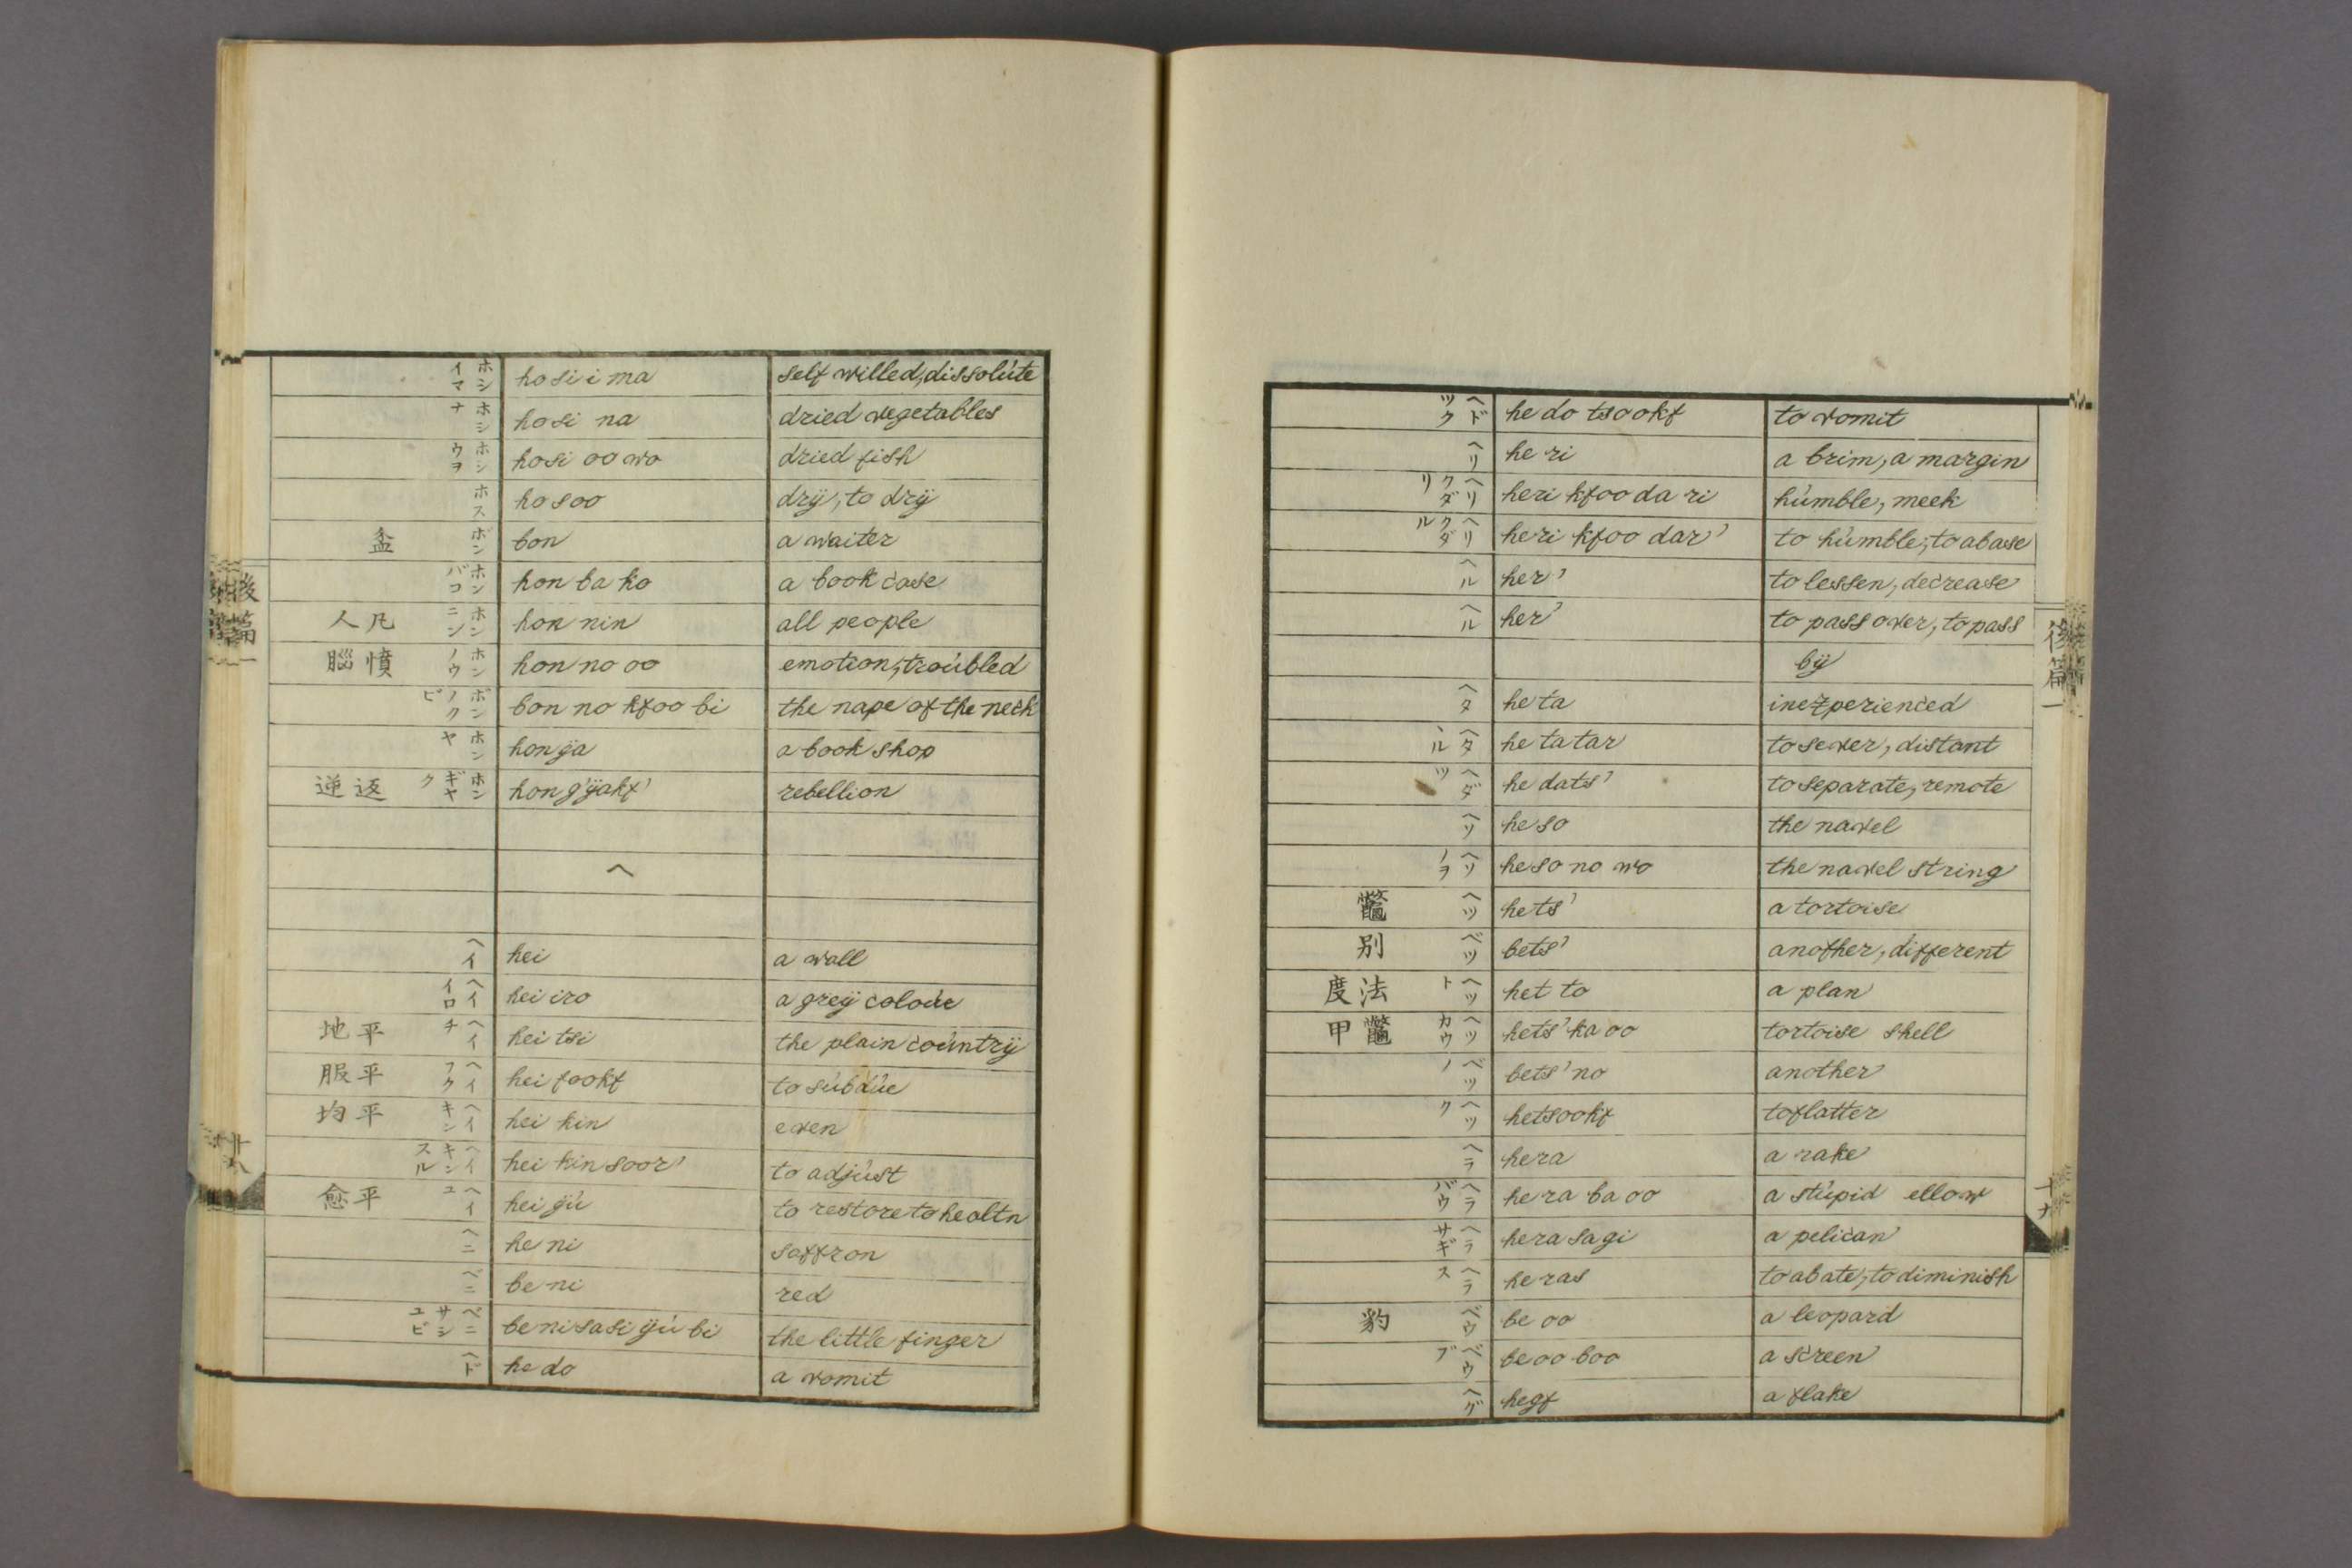 ホシイマ hosi i ma self willed, dissolúte
ホシナ hosi na dried vegetables
ホシウヲ hosi oo wo dried fish
ホス ho soo drÿ, to drÿ
盆 ボン bon a waiter
ホンバコ hon ba ko a book case
人凡 ホンニン hon nin all people
腦憤 ホンノウ hon no oo emotion, troúbled
ボンノクビ bon no kfoo bi the nape of the neck
ホンヤ hon ÿa a book shop
逆返 ホンギヤク hon g'ÿakf' rebellion
ヘ
ヘイ hei a wall
ヘイイロ hei iro a greÿ coloúr
地平 ヘイチ hei tsi the plain coúntrÿ
服平 ヘイフク hei fookf to súbdúe
均平 ヘイキン hei kin even
ヘイキンスル hei kin soor' to adjúst
愈平 ヘイユ hei ÿú to restore to healtn
ヘニ he ni saffron
ベニ be ni red
ベニサシユビ be ni sasi ÿú bi the little finger
ヘド he do a vomit
後篇一
十八
ヘドツク he do tsookf to vomit
ヘリ he ri a brim, a margin
ヘリクダリ heri kfoo da ri húmble, meek
ヘリクダル heri kfoo dar' to húmble, to abase
ヘル her' to lessen, decrease
ヘル her' to pass over, to pass
bÿ
ヘタ he ta inexperienced
ヘタヽル he ta tar to sever, distant
ヘダツ he dats' to separate, remote
ヘソ he so the navel
ヘソノヲ he so no wo the navel string
鼈 ヘツ hets' a tortoise
别 ベツ bets' another, different
度法 ヘツト het to a plan
甲鼈 ヘツカウ hets' ka oo tortoise shell
ベツノ bets' no another
ヘツク hetsookf to flatter
ヘラ hera a rake
ヘラバウ he ra ba oo a stúpid ellow
ヘラサギ hera sa gi a pelican
ヘラス he ras to abate, to diminish
豹 ベウ be oo a leopard
ベウブ be oo boo a screen
ヘゲ hegf a flake
後篇一
十九